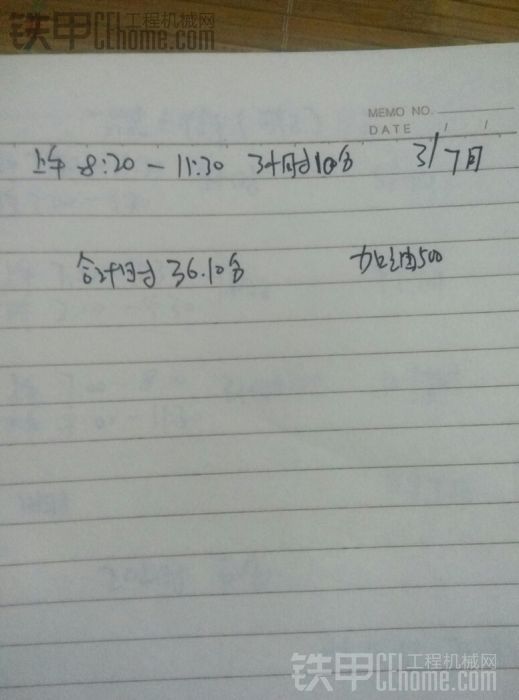 铁甲 工程机械网 CEhome.com
MEMO NO.
DATE / /
上午 8:20 — 11:30 3小时10分 3/7月
合计时 36.10分 加油500
铁甲 工程机械网 CEhome.com